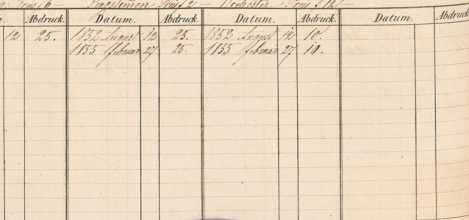 Abdruck. Datum. Abdruck. Datum. Abdruck. Datum. Abdruck
12 25. 1852 August 12 25. 1852 August 12 10.
1853 Februar 27. 25. 1853 Februar 27 10.